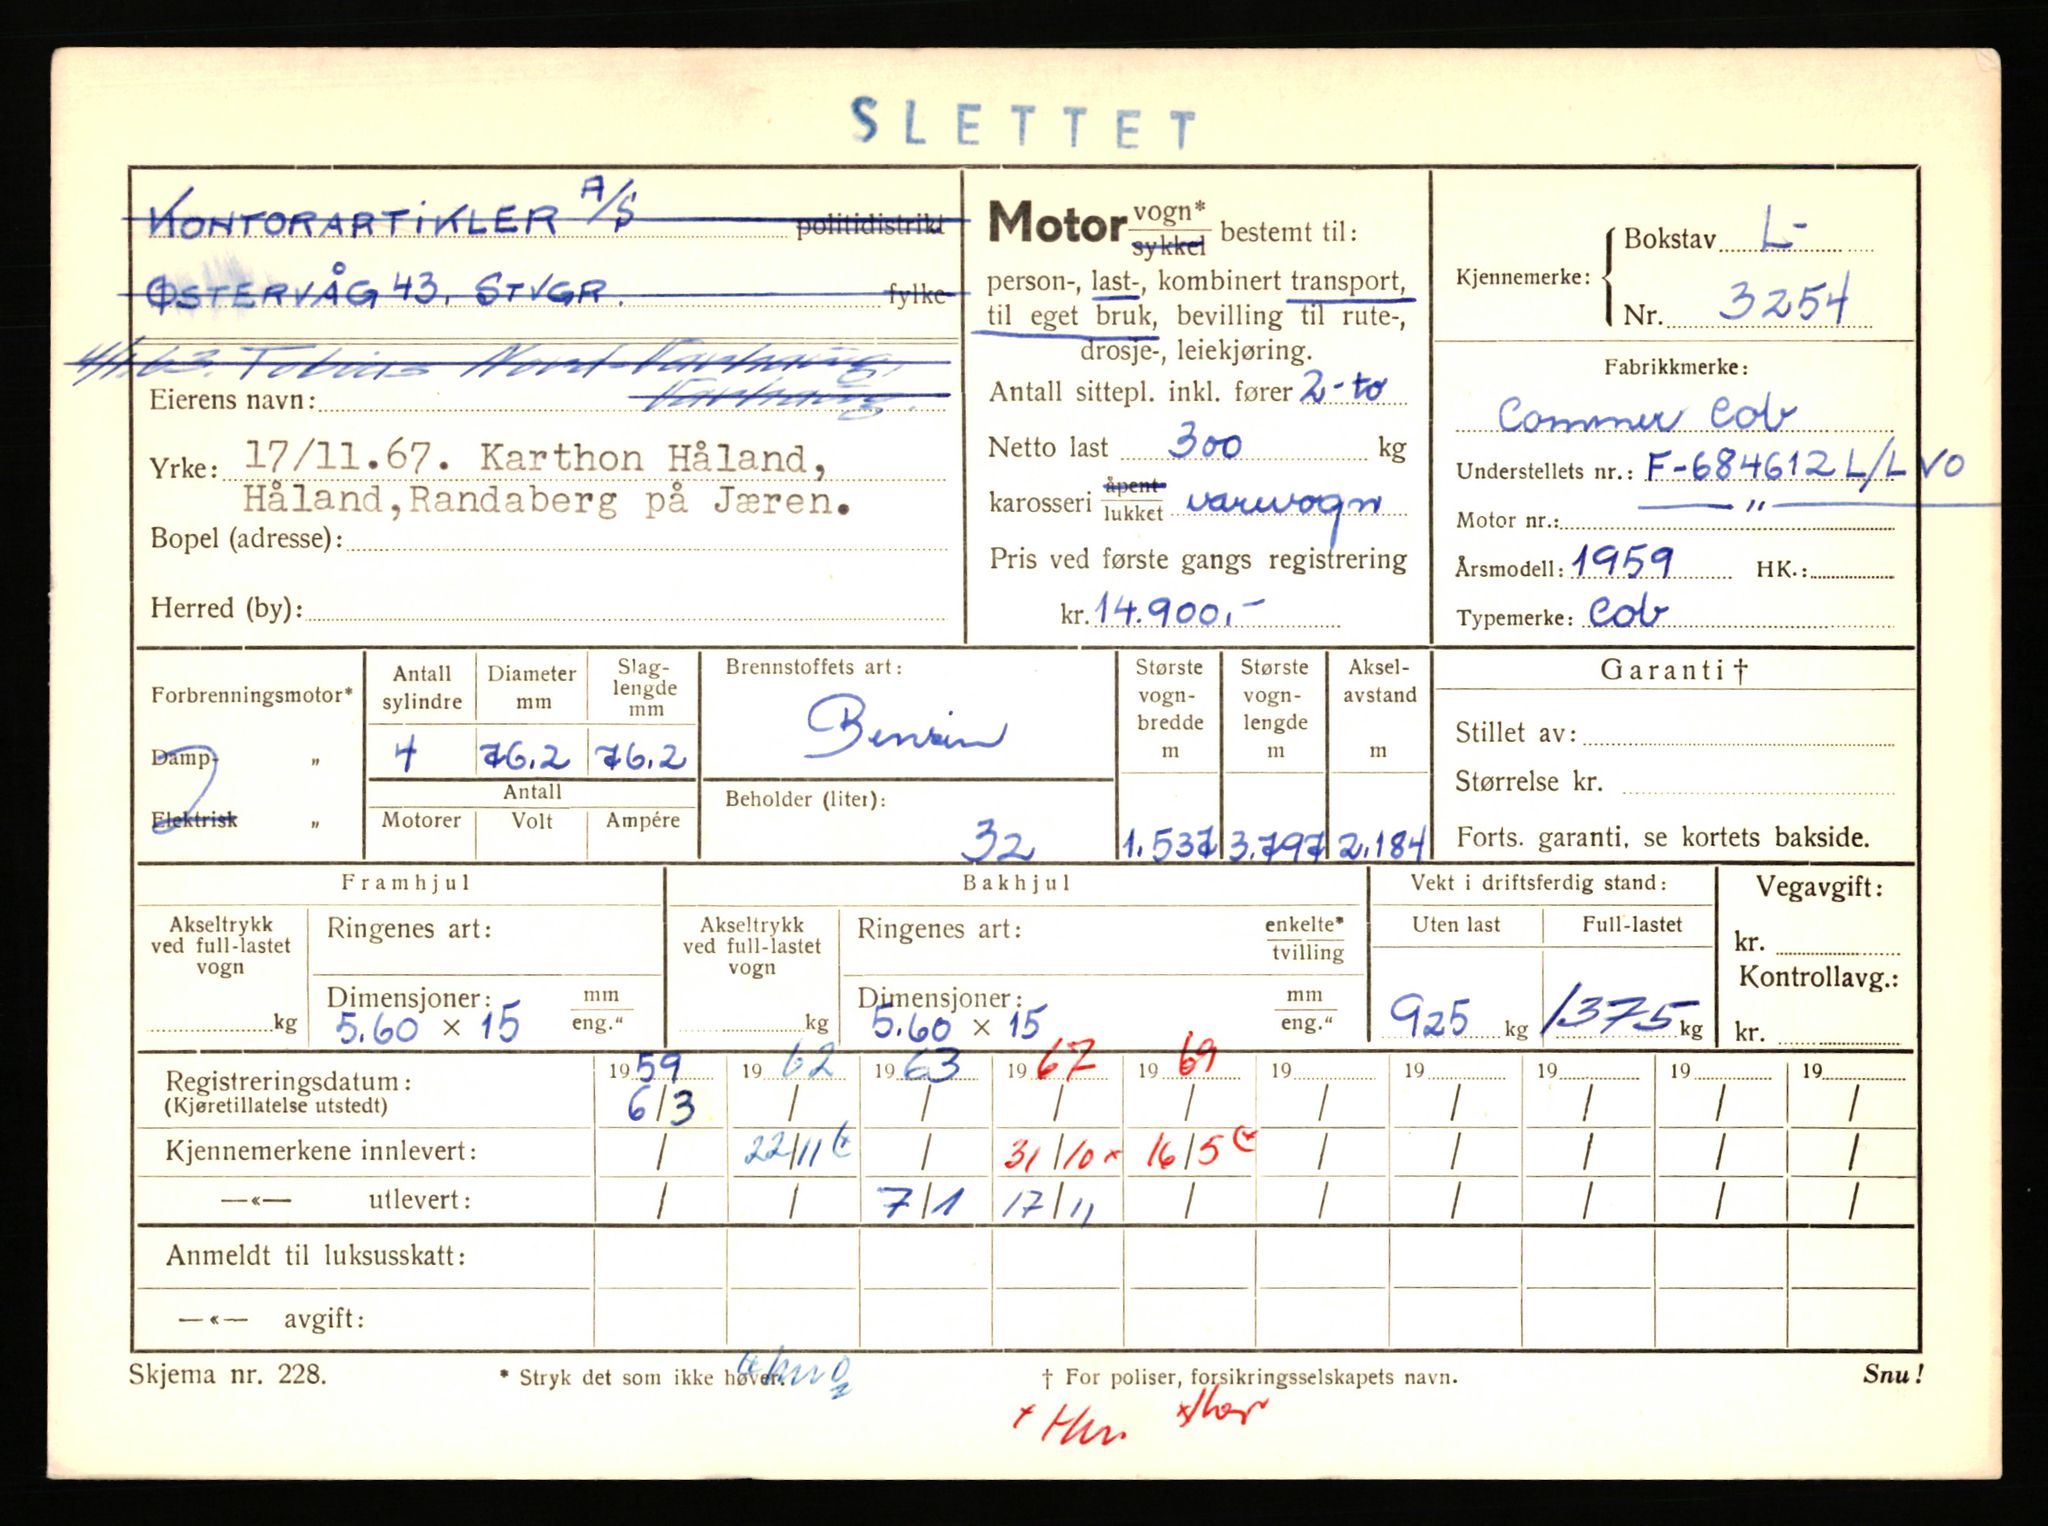 SLETTET
KONTORARTIKLER A/S politidistrikt
ØSTERVÅG 43, STVGR. fylke
Tobias
Eierens navn:
Yrke: 17/11.67. Karthon Håland,
Håland, Randaberg på Jæren.
Bopel (adresse):
Herred (by):
Motor vogn* sykkel bestemt til:
person-, last-, kombinert transport,
til eget bruk, bevilling til rute-,
drosje-, leiekjøring.
Antall sittepl. inkl. fører 2-to
Netto last 300 kg
karosseri åpent lukket varevogn
Pris ved første gangs registrering
kr. 14.900,-
Kjennemerke: Bokstav L-
Nr. 3254
Fabrikkmerke:
Commer Cob
Understellets nr.: F-684612 L/LVO
Motor nr.: — " —
Årsmodell: 1959 HK.:
Typemerke: Cob
Forbrenningsmotor*
Damp- "
Elektrisk "
Antall sylindre Diameter mm Slag-lengde mm
4 76.2 76.2
Antall
Motorer Volt Ampére
Brennstoffets art:
Bensin
Beholder (liter):
32
Største vogn-bredde m Største vogn-lengde m Aksel-avstand m
1.537 3.797 2.184
Garanti †
Stillet av:
Størrelse kr.
Forts. garanti, se kortets bakside.
Framhjul Bakhjul Vekt i driftsferdig stand: Vegavgift:
Akseltrykk ved full-lastet vogn kg
Ringenes art:
Dimensjoner: mm eng."
5.60 × 15
Akseltrykk ved full-lastet vogn kg
Ringenes art: enkelte* tvilling
Dimensjoner: mm eng."
5.60 × 15
Uten last Full-lastet
925 kg 1375 kg
kr.
Kontrollavg.:
kr.
Registreringsdatum: 1959 1962 1963 1967 1969 19 19 19 19 19
(Kjøretillatelse utstedt) 6/3 / / / / / / / / /
Kjennemerkene innlevert: / 22/11 / 31/10 × 16/5 / / / / /
—«— utlevert: / / 7/1 17/11 / / / / / /
Anmeldt til luksusskatt:
—«— avgift:
Skjema nr. 228. * Stryk det som ikke høver. † For poliser, forsikringsselskapets navn. Snu!